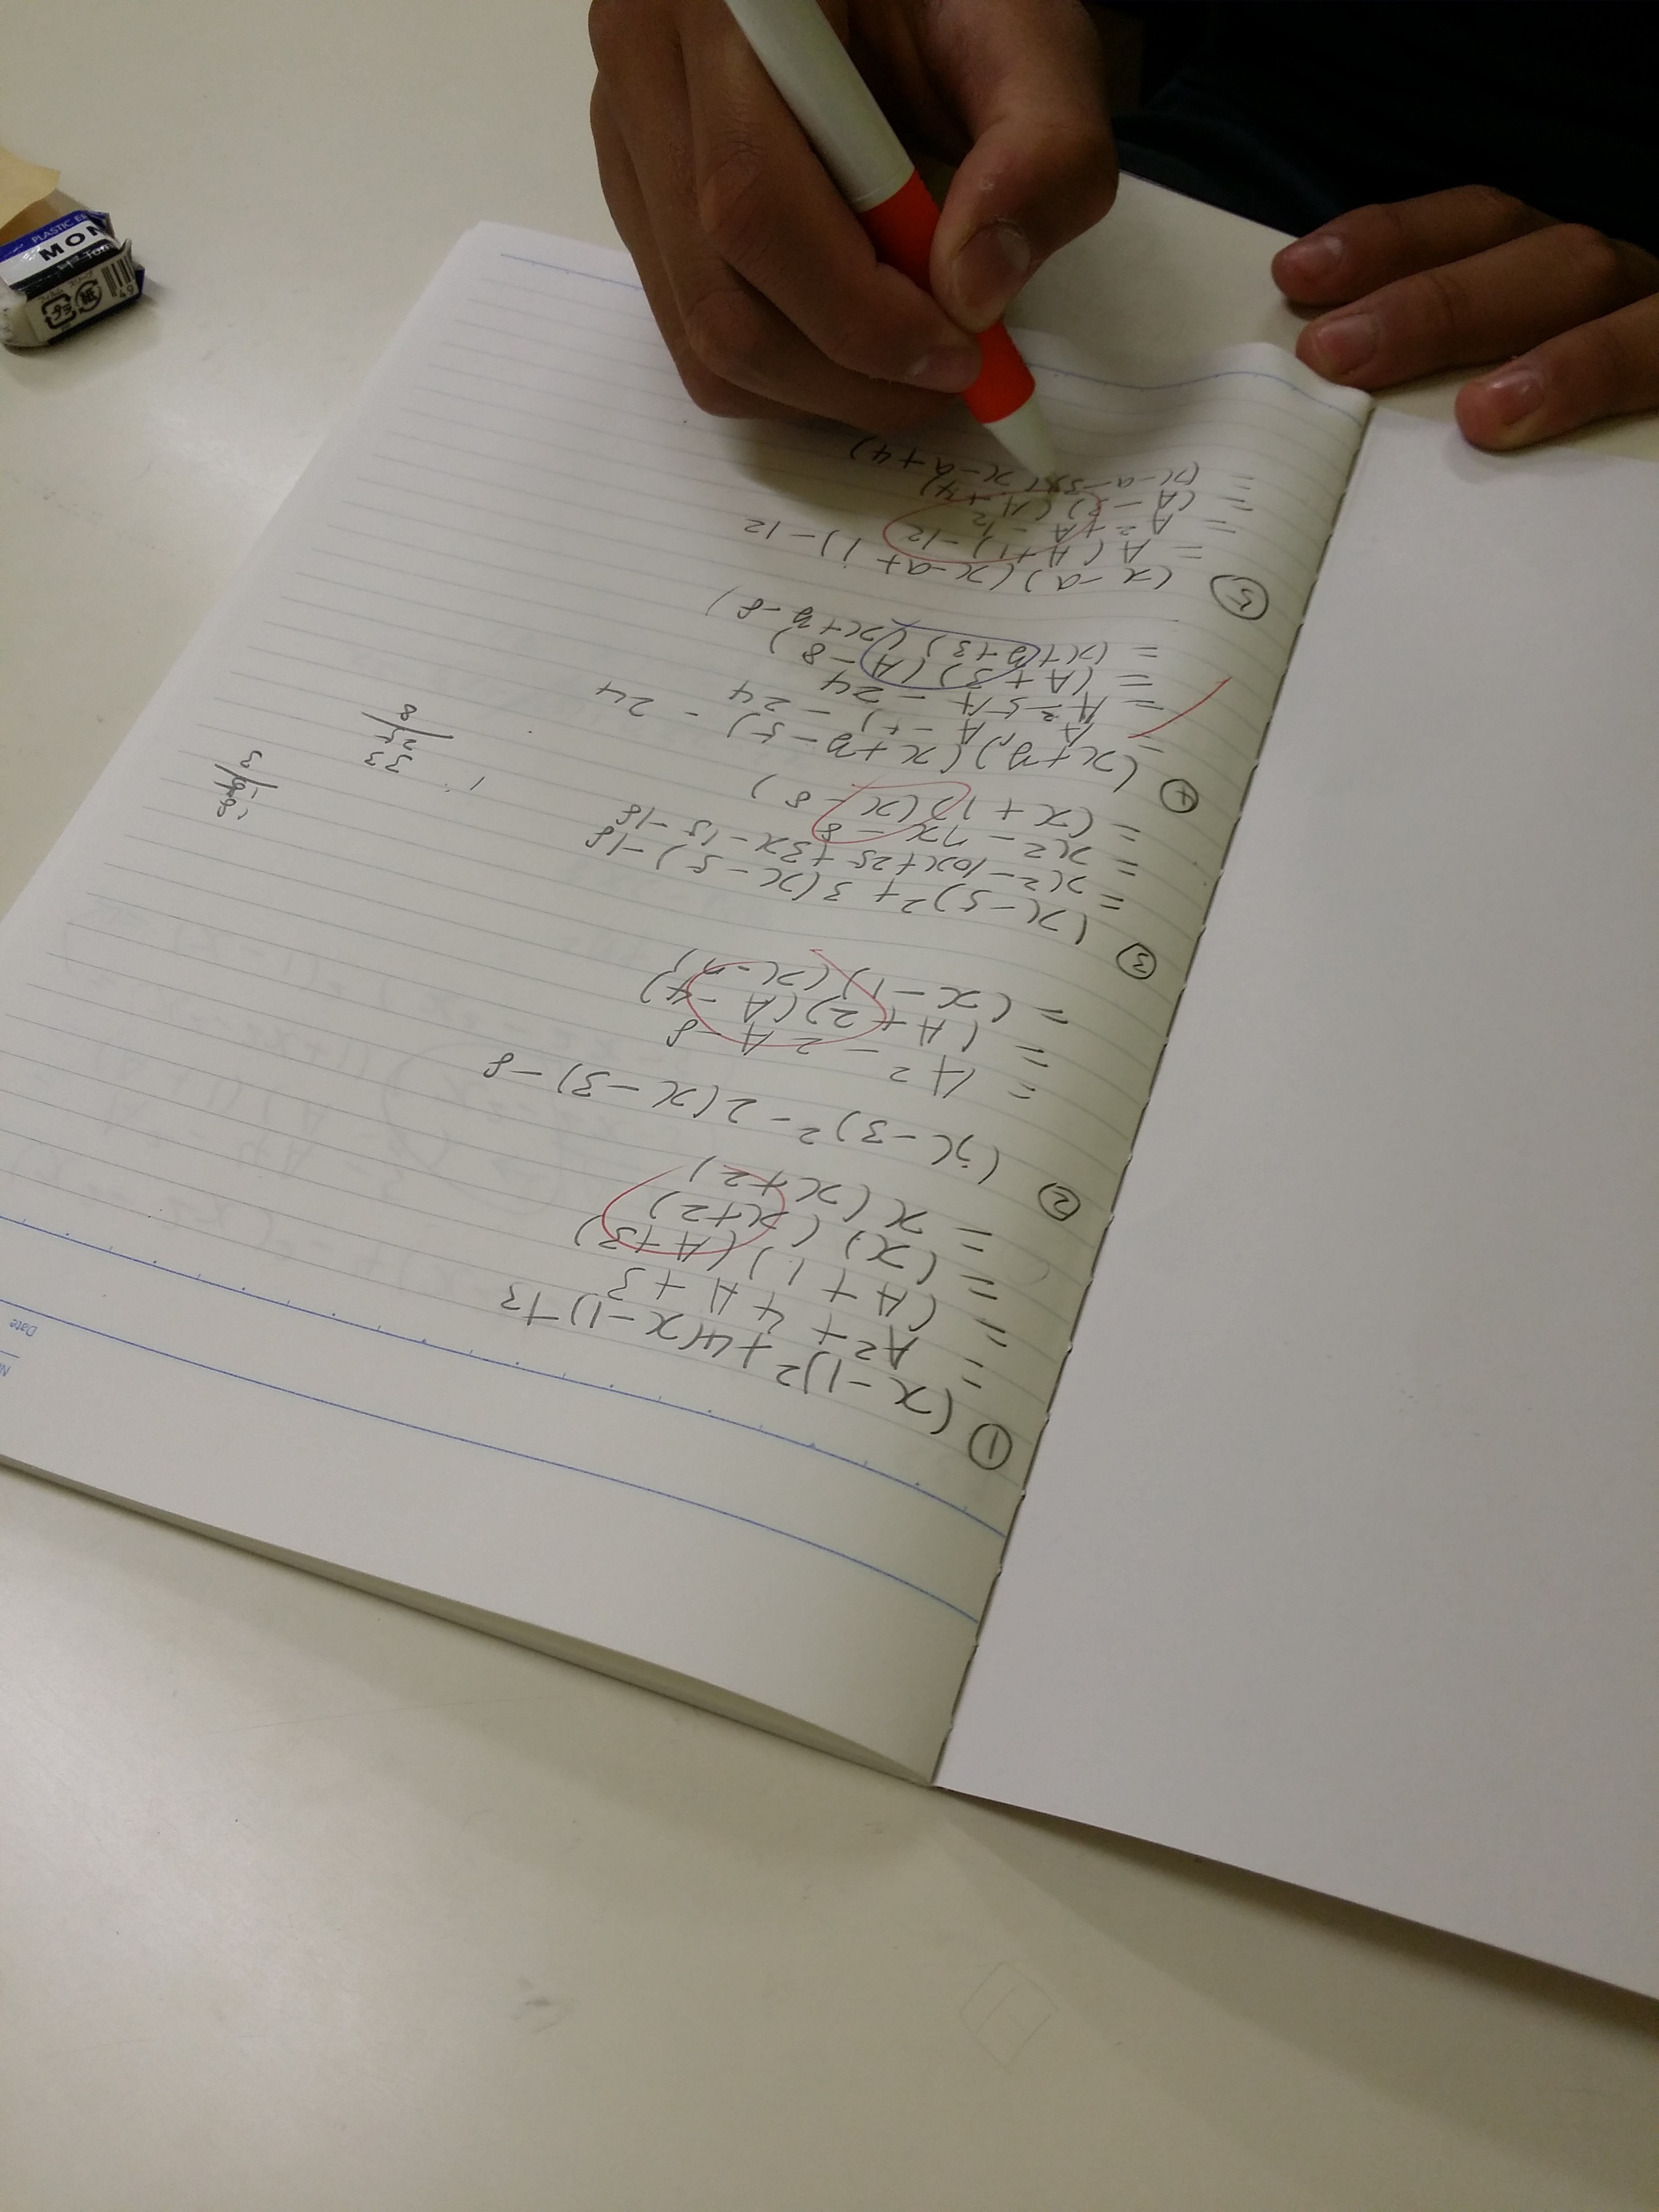 ① (x-1)²+4(x-1)+3
= A²+4A+3
= (A+1)(A+3)
= (x)(x+2)
= x(x+2)
② (x-3)²-2(x-3)-8
= A²-2A-8
= (A+2)(A-4)
= (x-1)(x-7)
③ (x-5)²+3(x-5)-18
= x²-10x+25+3x-15-18
= x²-7x-8
= (x+1)(x-8)
④ (x+y)(x+y-5)-24
= A(A-5)-24
= A²-5A-24
= (A+3)(A-8)
= (x+y+3)(x+y-8)
⑤ (x-a)(x-a+1)-12
= A(A+1)-12
= A²+A-12
= (A-3)(A+4)
= (x-a-3)(x-a+4)
33
25
8
3
PLASTIC
MON
Date